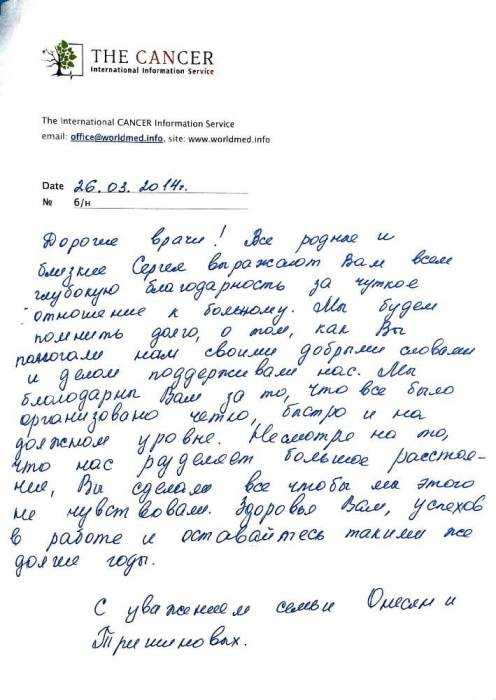 THE CANCER
International Information Service
The International CANCER Information Service
email: office@worldmed.info, site: www.worldmed.info
Date 26.03.2014г.
№ б/н
Дорогие врачи! Все родные и
близкие Сергея выражают Вам всем
глубокую благодарность за чуткое
отношение к больному. Мы будем
помнить долго, о том, как Вы
помогали нам своими добрыми словами
и делом поддерживали нас. Мы
благодарны Вам за то, что все было
организовано четко, быстро и на
должном уровне. Несмотря на то,
что нас разделяет большое расстоя-
ние, Вы сделали все чтобы мы этого
не чувствовали. Здоровья Вам, успехов
в работе и оставайтесь такими же
долгие годы.
С уважением семьи и
Тришиновых.